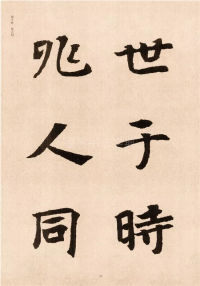 世于時
兆人同